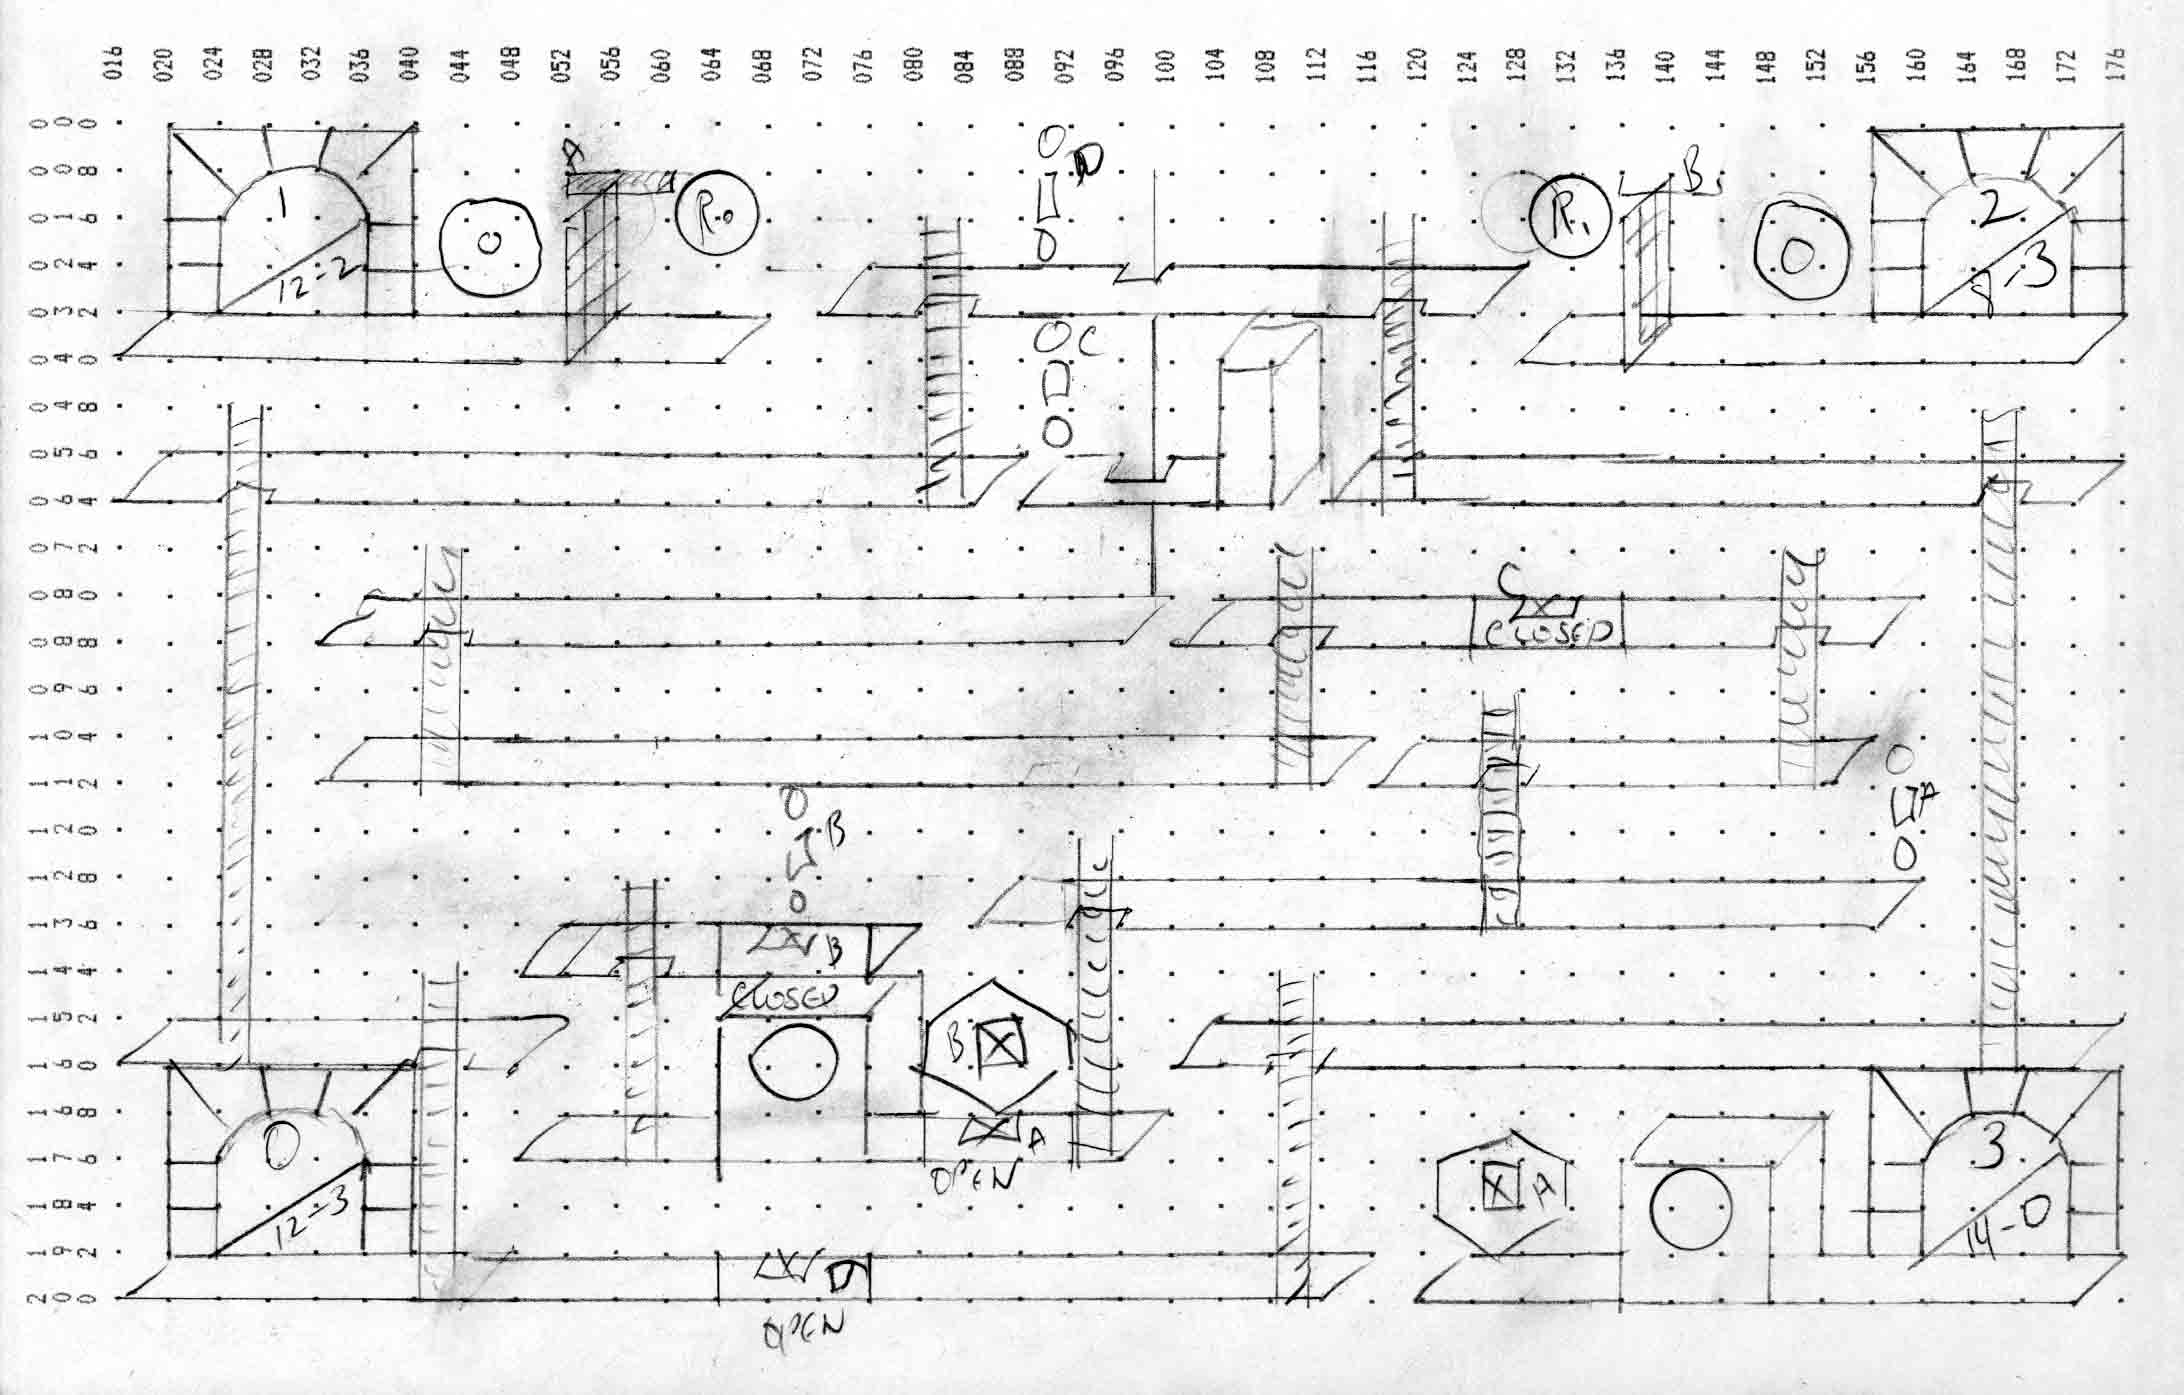 016 020 024 028 032 036 040 044 048 052 056 060 064 068 072 076 080 084 088 092 096 100 104 108 112 116 120 124 128 132 136 140 144 148 152 156 160 164 168 172 176
000
008
016
024
032
040
048
056
064
072
080
088
096
104
112
120
128
136
144
152
160
168
176
184
192
200
1
12-2
O
A
R0
D
R1
B
O
2
8-3
C
C
CLOSED
A
B
B
CLOSED
B
A
OPEN
0
12-3
D
OPEN
A
3
14-0